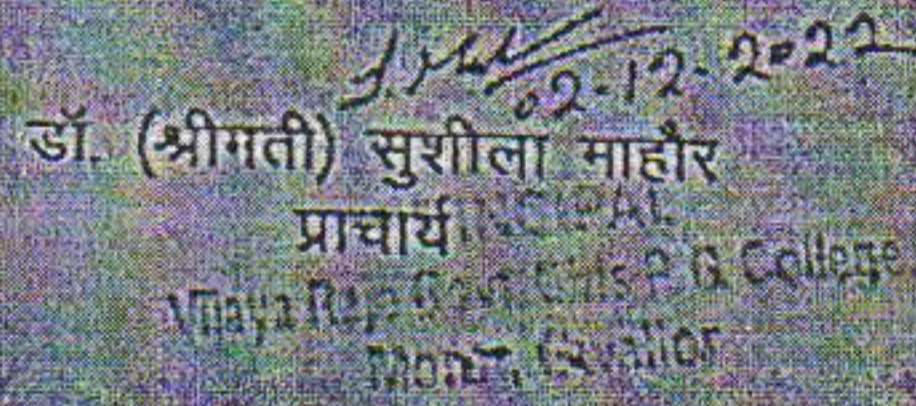 02-12-2022
डॉ. (श्रीमती) सुशीला माहौर
प्राचार्य PRINCIPAL
Vijaya Raje Govt. Girls P. G. College
Morar, Gwalior